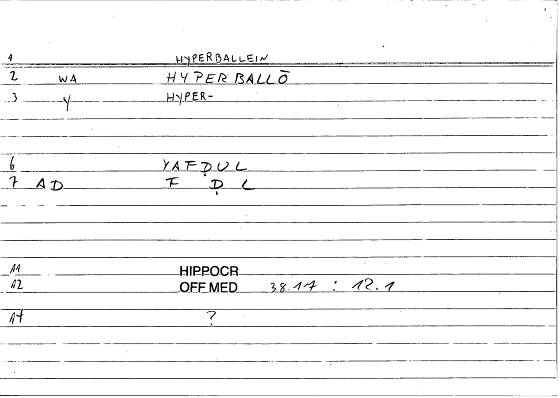 1 HYPERBALLEIN
2 WA HYPERBALLŌ
3 Y HYPER-
6 YAFḌUL
7 AD F Ḍ L
11 HIPPOCR
12 OFF MED 38.17 : 12.1
17 ?